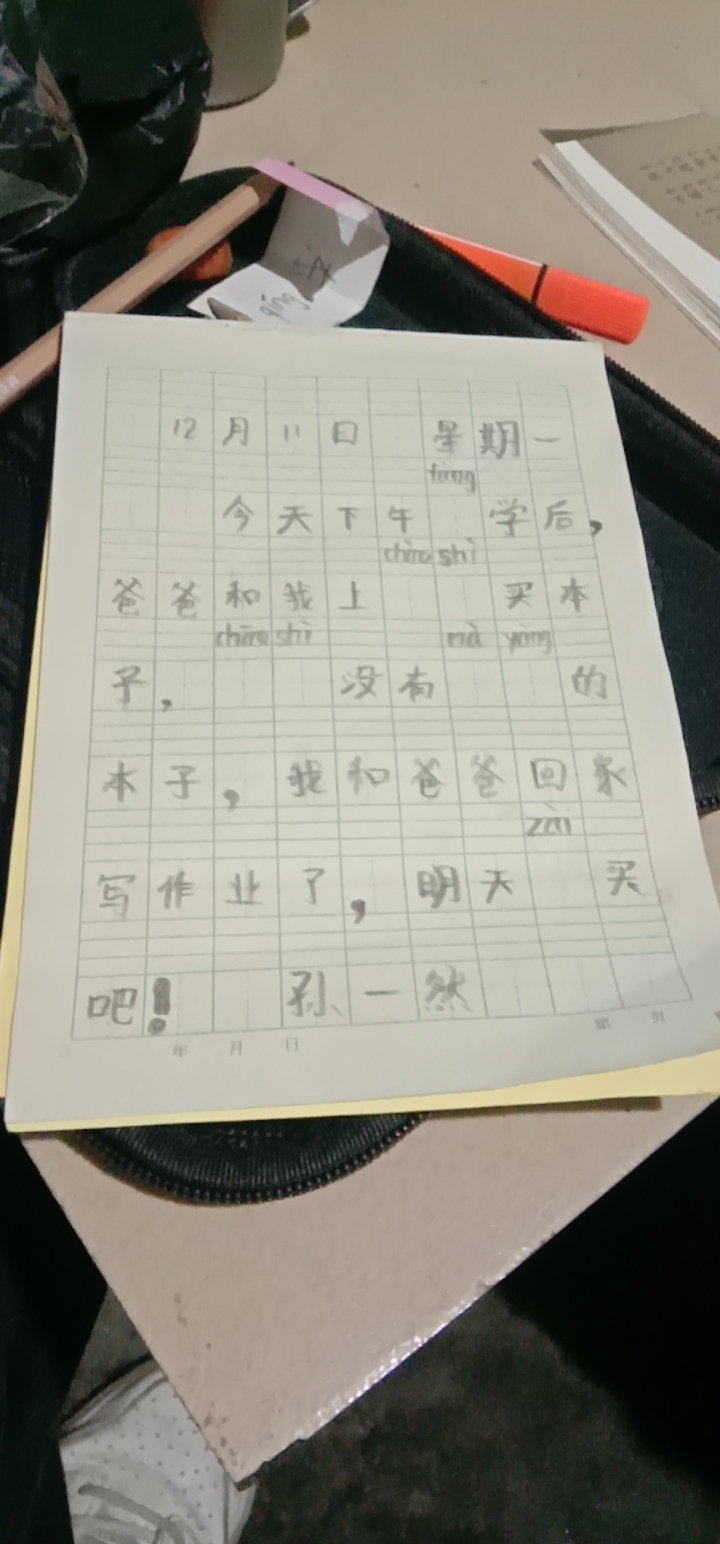 qíng
12月11日 星期一
fàng
今天下午 学后，
chāo shì
爸爸和我上 买本
chāo shì nà yàng
子， 没有 的
本子，我和爸爸回家
zài
写作业了，明天 买
吧！ 孙一然
年 月 日